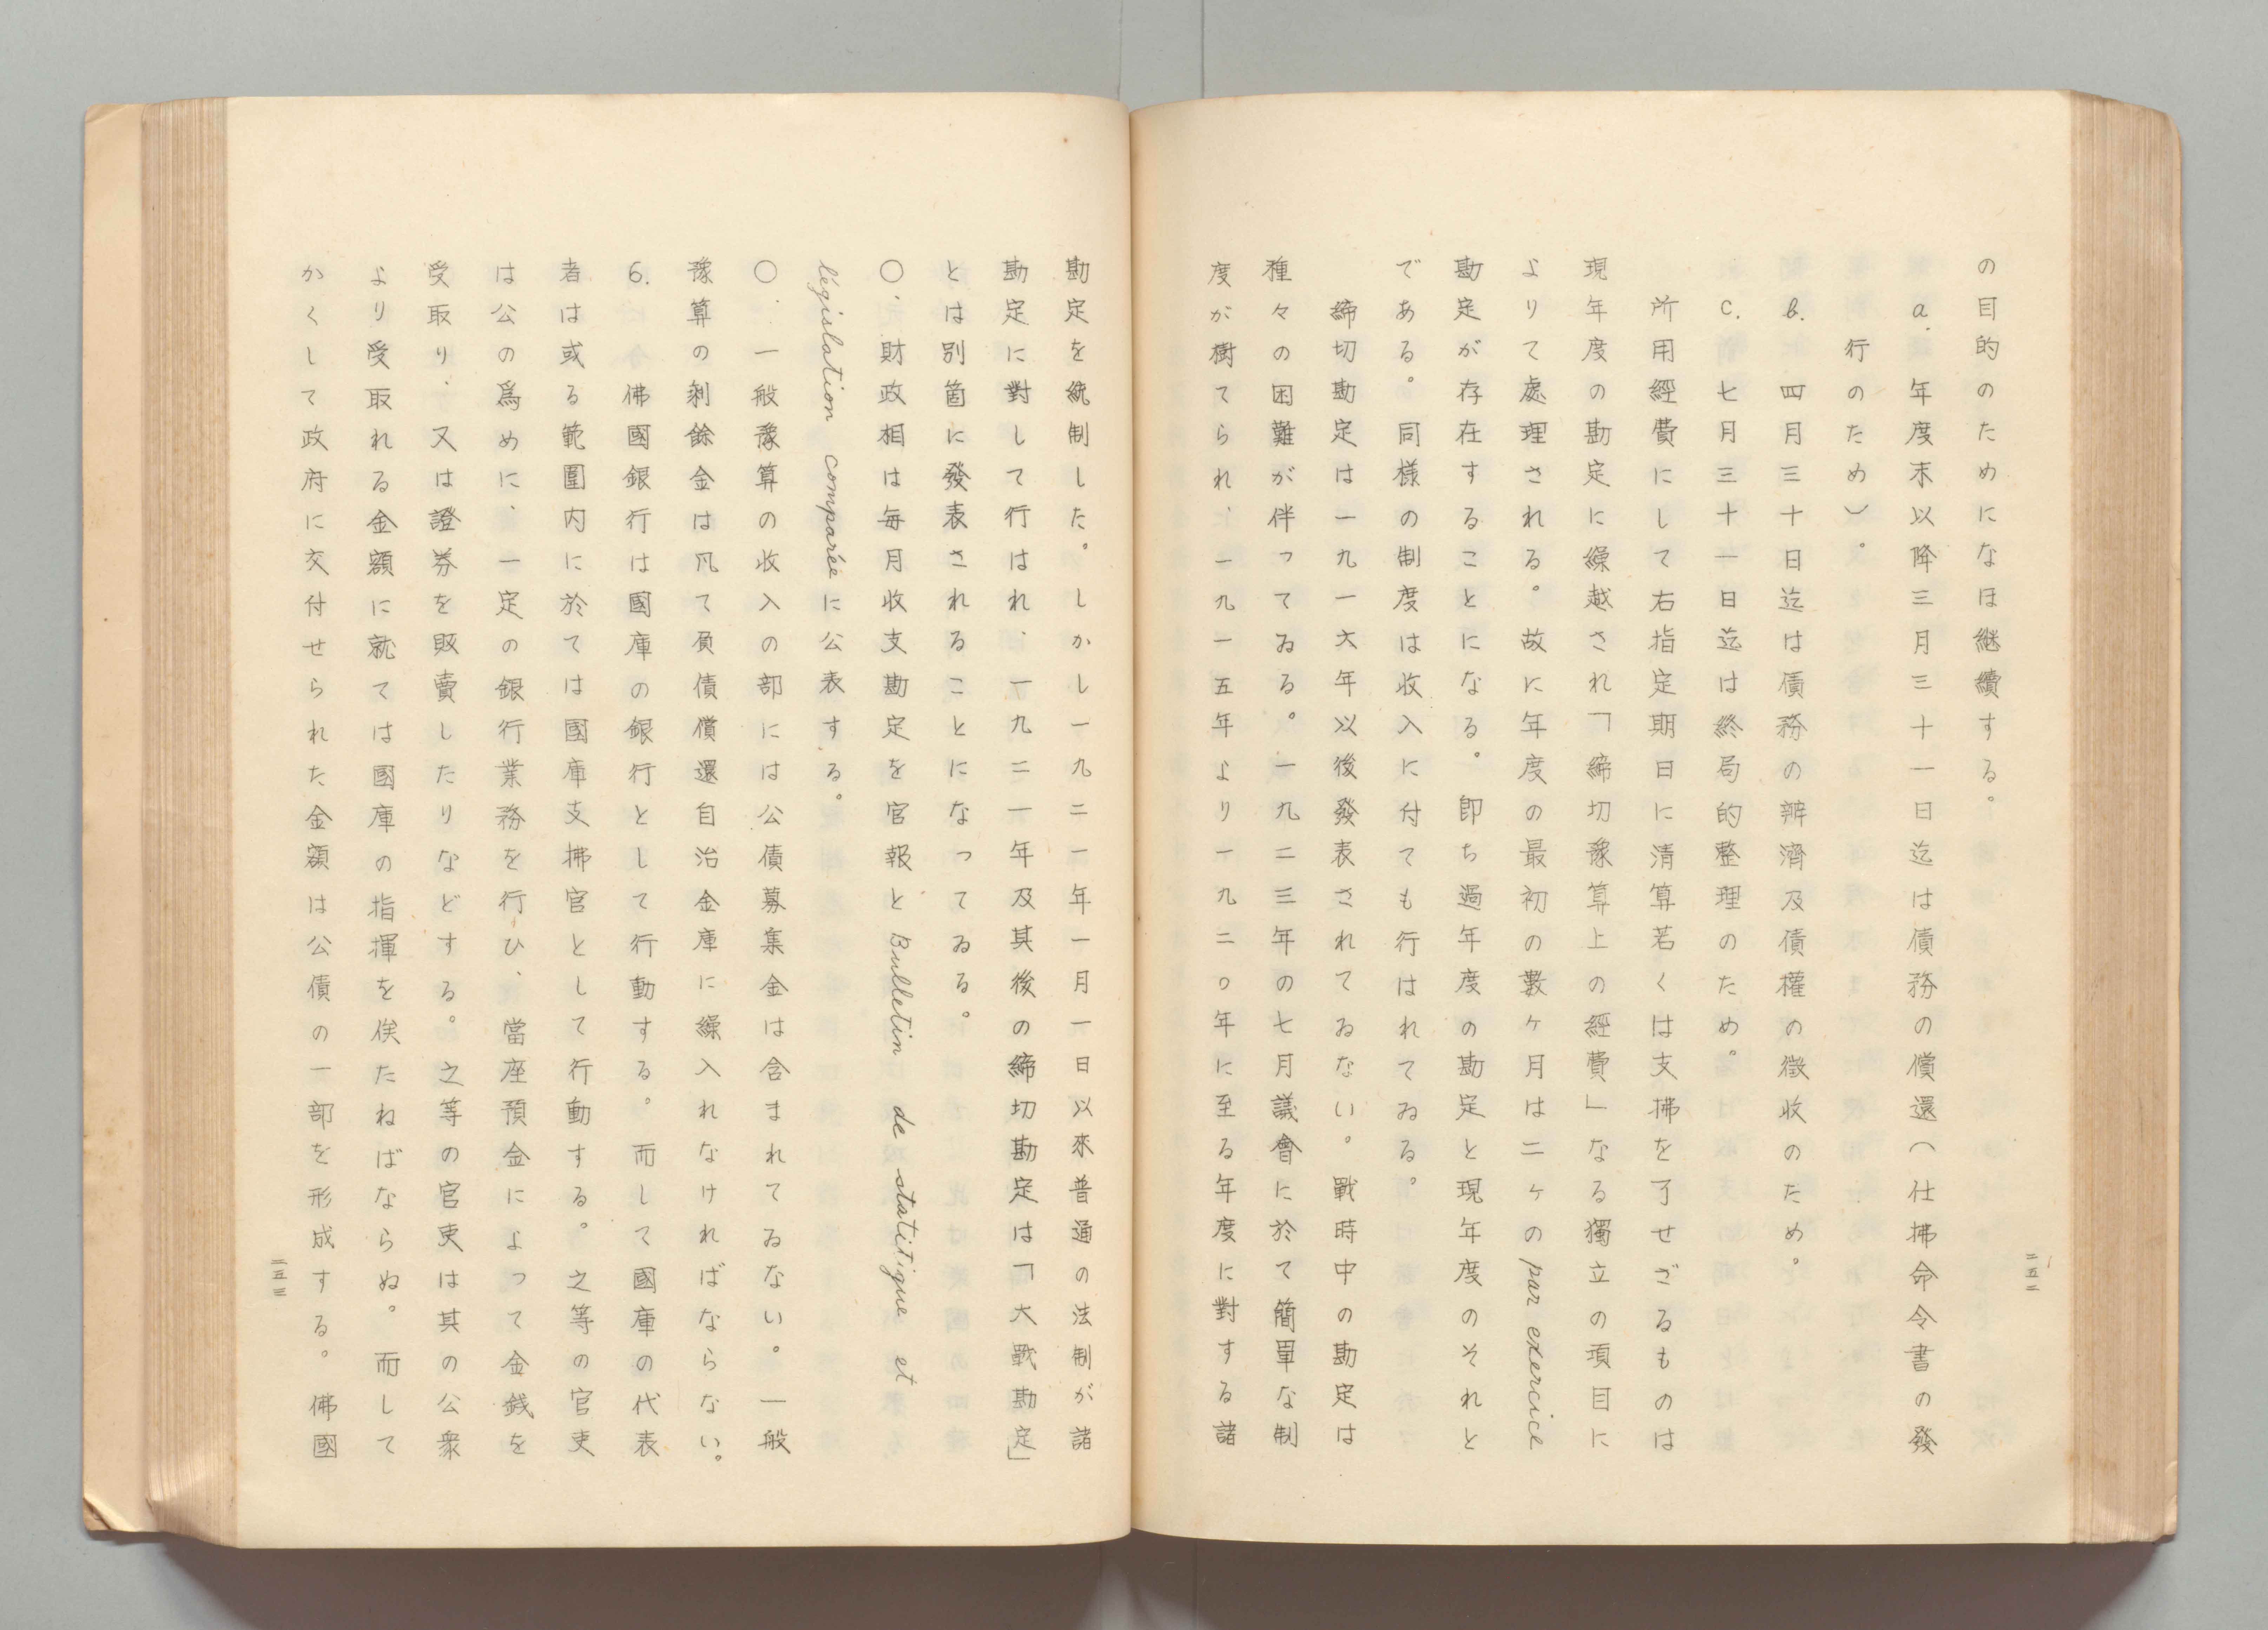 の目的のためになほ継續する。
a. 年度末以降三月三十一日迄は債務の償還（仕拂命令書の發
行のため）。
b. 四月三十日迄は債務の辨濟及債權の徵收のため。
c. 七月三十一日迄は終局的整理のため。
所用經費にして右指定期日に清算若くは支拂を了せざるものは
現年度の勘定に繰越され「締切豫算上の經費」なる獨立の項目に
よりて處理される。故に年度の最初の數ヶ月は二ヶの par exercice
勘定が存在することになる。即ち過年度の勘定と現年度のそれと
である。同様の制度は收入に付ても行はれてゐる。
締切勘定は一九一六年以後發表されてゐない。戰時中の勘定は
種々の困難が伴ってゐる。一九二三年の七月議會に於て簡單な制
度が樹てられ、一九一五年より一九二〇年に至る年度に對する諸
二五二
勘定を統制した。しかし一九二一年一月一日以來普通の法制が諸
勘定に對して行はれ、一九二一年及其後の締切勘定は「大戰勘定」
とは別箇に發表されることになってゐる。
〇、財政相は毎月收支勘定を官報と Bulletin de statitique et
législation comparée に公表する。
〇、一般豫算の收入の部には公債募集金は含まれてゐない。一般
豫算の剩餘金は凡て負債償還自治金庫に繰入れなければならない。
6. 佛國銀行は國庫の銀行として行動する。而して國庫の代表
者は或る範圍内に於ては國庫支拂官として行動する。之等の官吏
は公の爲めに、一定の銀行業務を行ひ、當座預金によって金銭を
受取り、又は證券を販賣したりなどする。之等の官吏は其の公衆
より受取れる金額に就ては國庫の指揮を俟たねばならぬ。而して
かくして政府に交付せられた金額は公債の一部を形成する。佛國
二五三